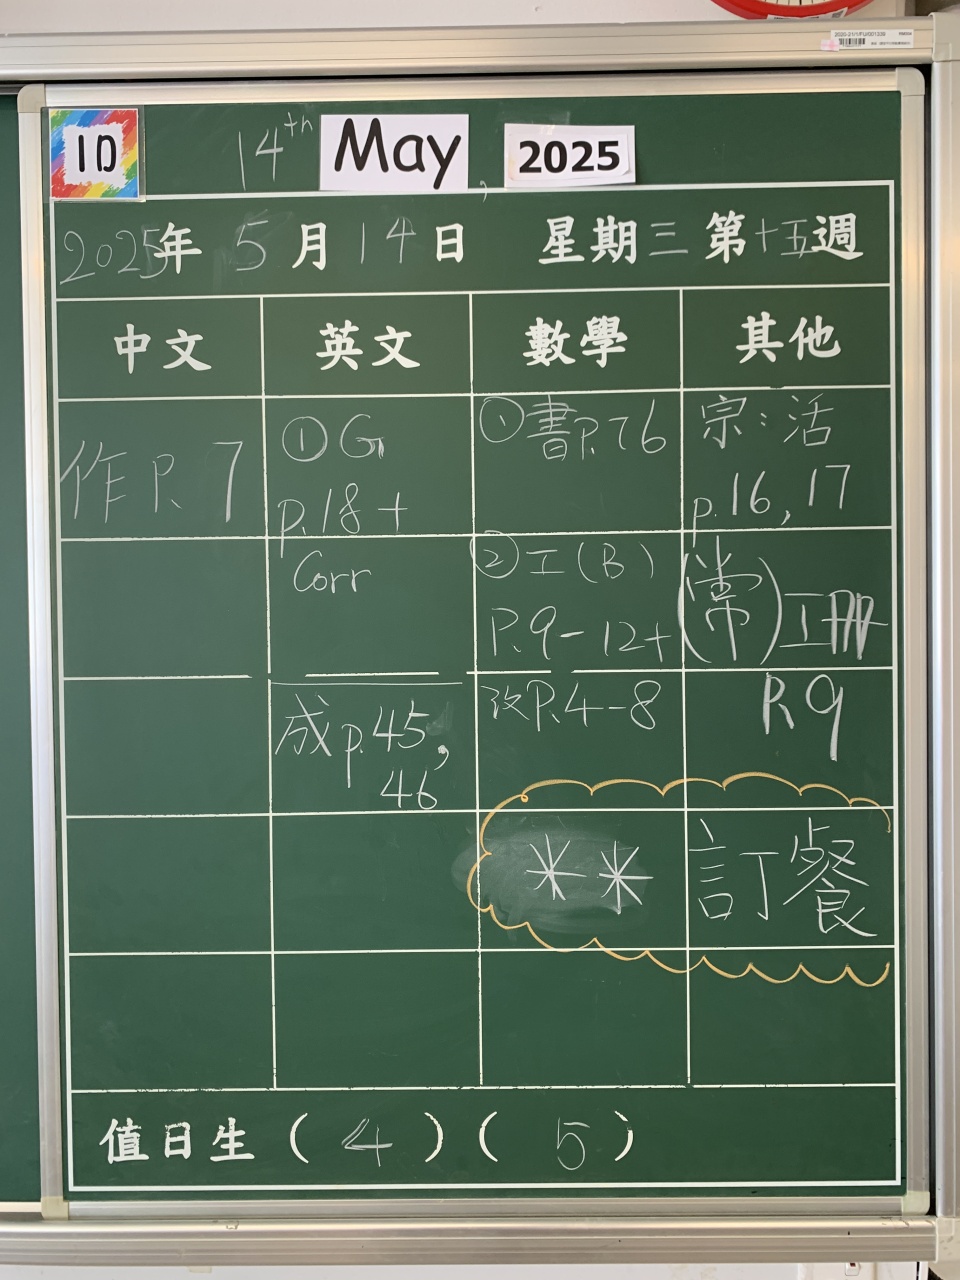 1D
14th May, 2025
2025年 5月14日 星期三 第十五週
中文 英文 數學 其他
作P.7
①G
p.18+
Corr
成p.45,
46
①書P.76
②工(B)
P.9-12+
改P.4-8
宗:活
p.16,17
(常)工冊
P.9
** 訂餐
值日生(4)(5)